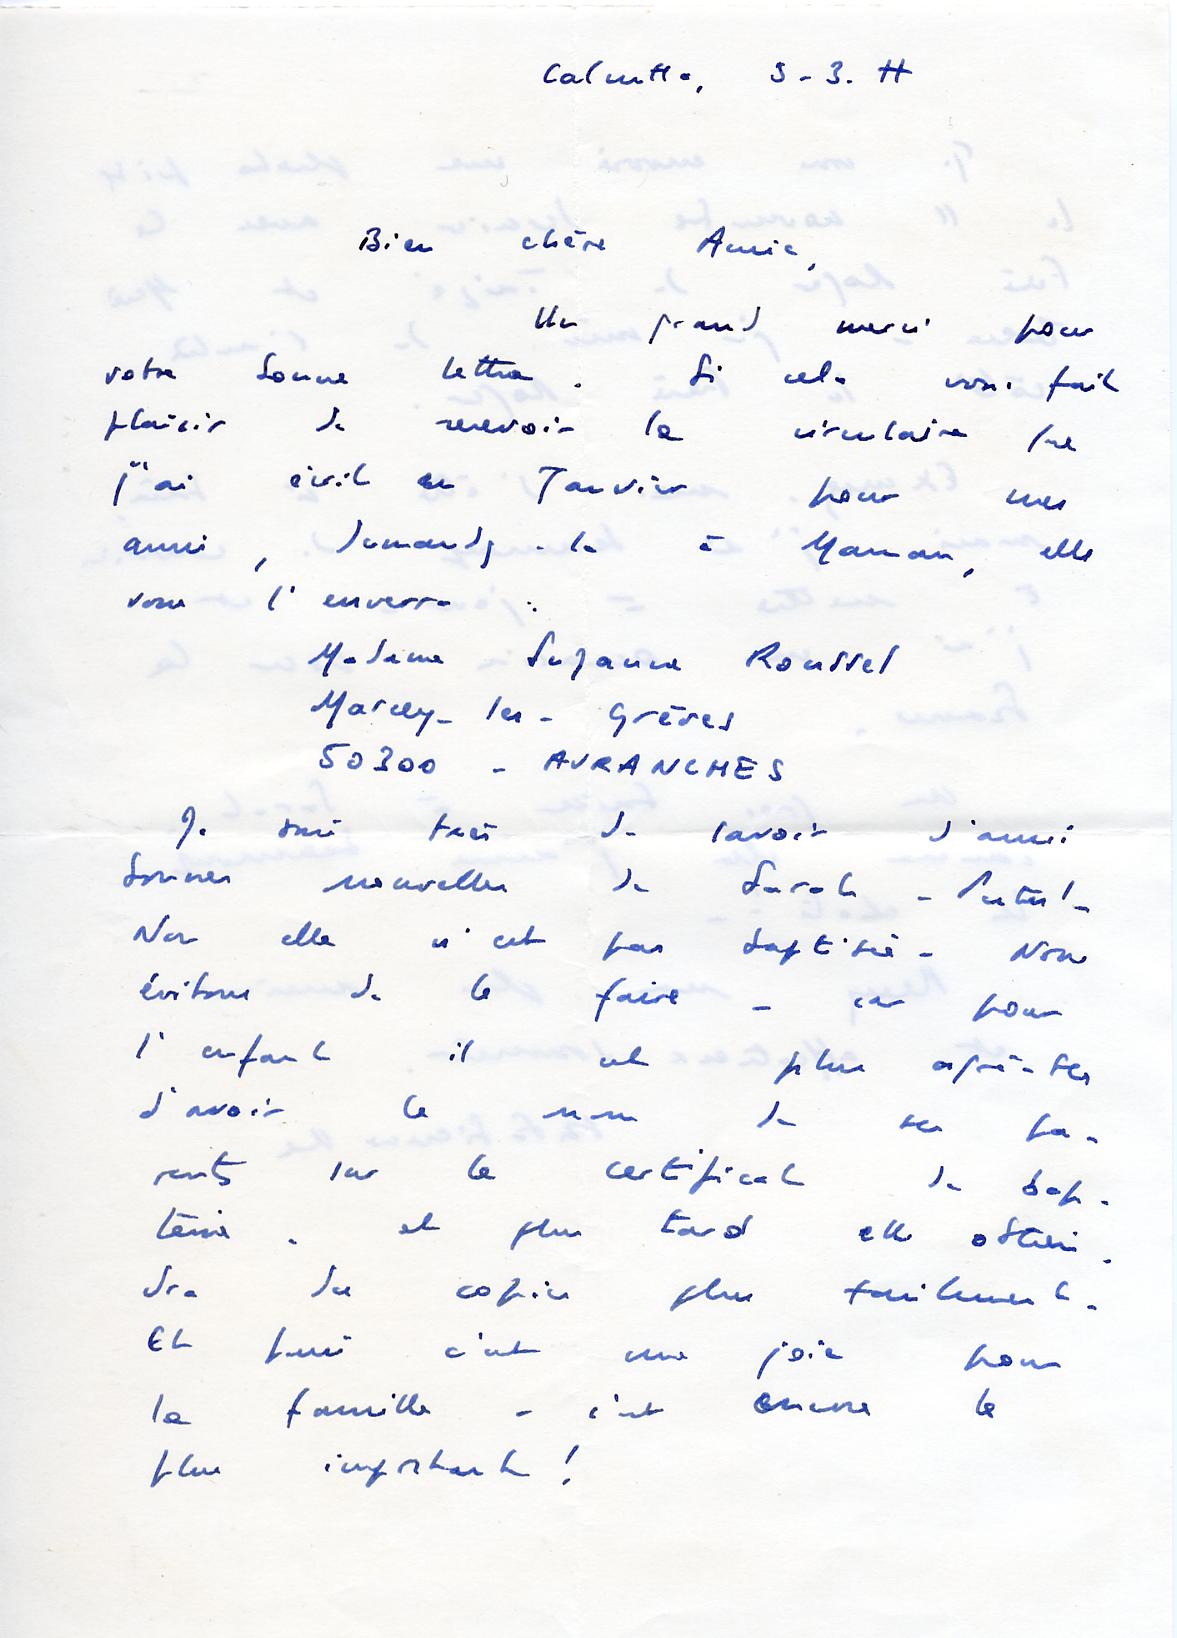 Calcutta, 3-3. 77
Bien chère Amie,
Un grand merci pour
votre bonne lettre. Si cela vous fait
plaisir de recevoir la circulaire que
j'ai écrit en Janvier pour mes
amis, demandez-la à Maman, elle
vous l'enverra :
Madame Suzanne Roussel
Marcey-les-Grèves
50300 - AVRANCHES
Je suis très de savoir d'aussi
bonnes nouvelles de Sarah -
Non elle n'est pas baptisée - Nous
évitons de le faire - car pour
l'enfant il est plus
d'avoir le nom de ses pa-
rents sur le certificat de bap-
tême. et plus tard elle obtien-
dra des copies plus facilement.
Et puis c'est une joie pour
la famille - c'est encore le
plus important !